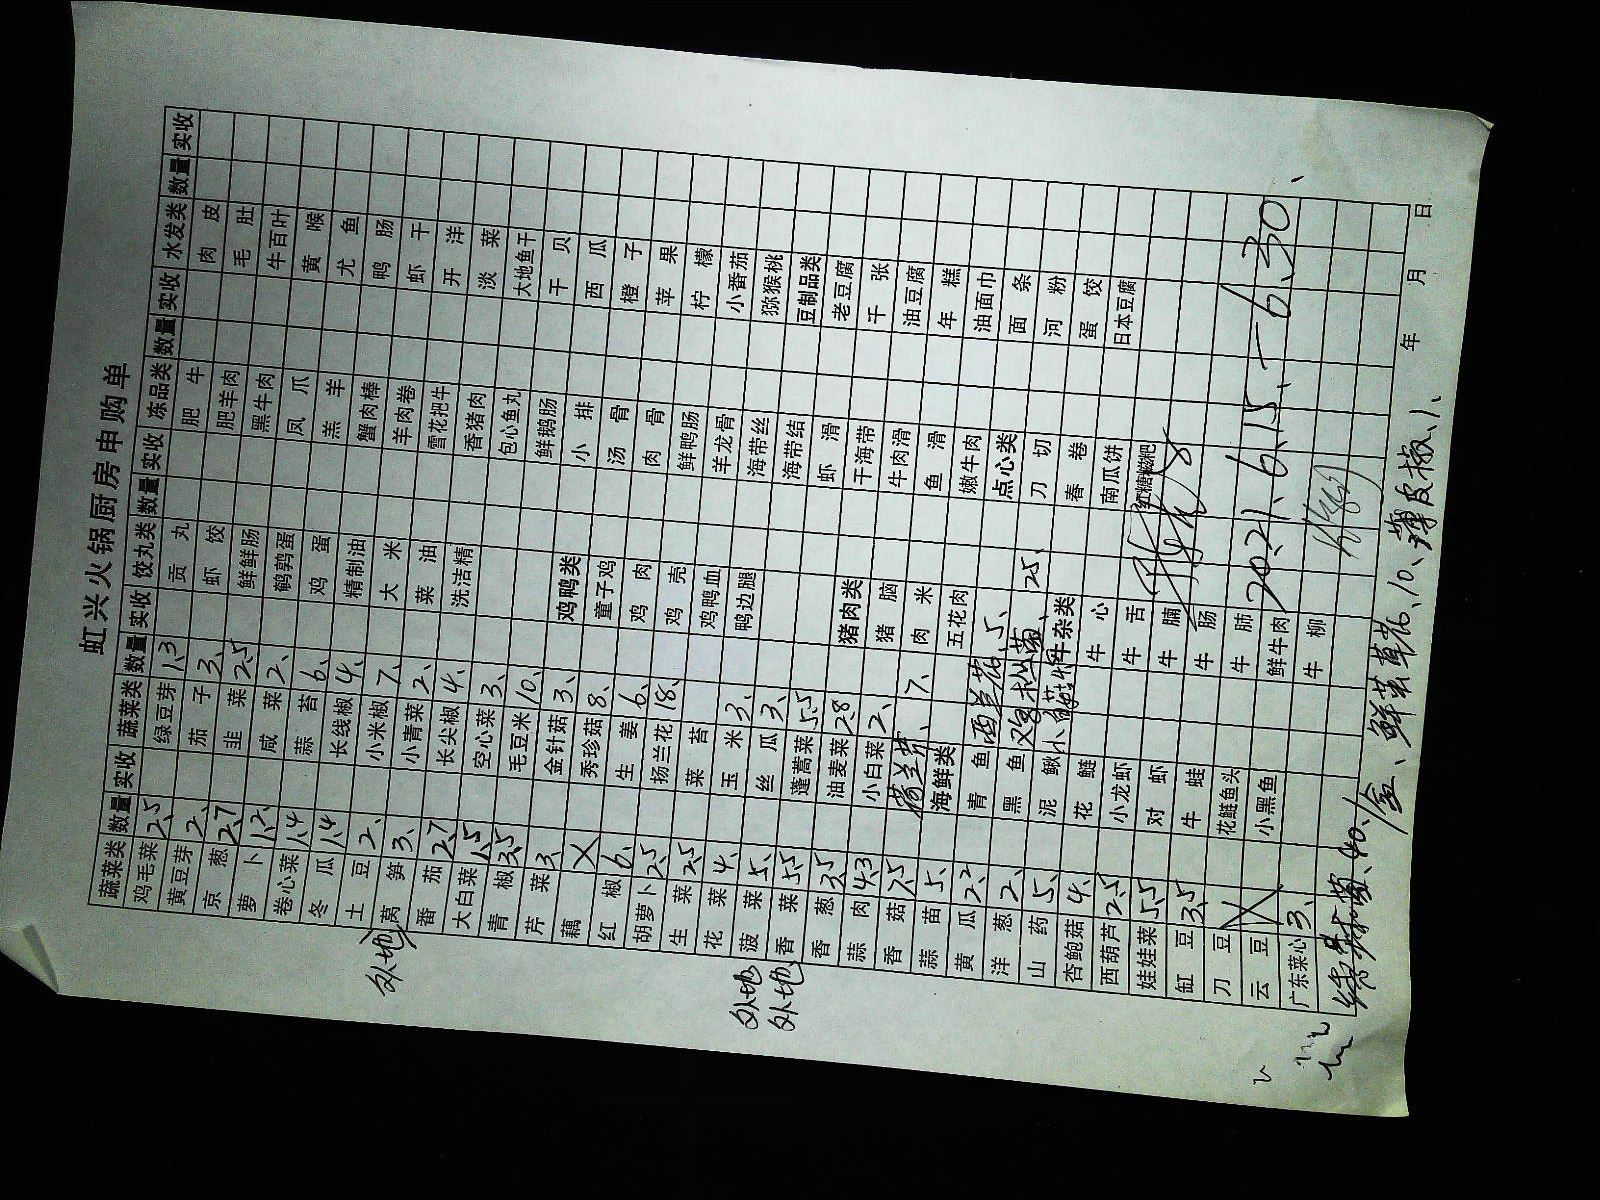 虹兴火锅厨房申购单
蔬菜类 数量 实收 蔬菜类 数量 实收 饺丸类 数量 实收 冻品类 数量 实收 水发类 数量 实收
鸡毛菜 2.5 绿豆芽 1.3 贡丸 肥牛 肉皮
黄豆芽 2、 茄子 3、 虾饺 肥羊肉 毛肚
京葱 2.7 韭菜 2.5 鲜鲜肠 黑牛肉 牛百叶
萝卜 1.2、 咸菜 2、 鹌鹑蛋 凤爪 黄喉
卷心菜 1.4 蒜苔 6、 鸡蛋 羔羊 尤鱼
冬瓜 1.4 长线椒 4、 精制油 蟹肉棒 鸭肠
土豆 2、 小米椒 7、 大米 羊肉卷 虾干
外地 莴笋 3、 小青菜 2、 菜油 雪花把牛 开洋
番茄 2.7 长尖椒 4、 洗洁精 香猪肉 淡菜
大白菜 1.5 空心菜 3、 包心鱼丸 大地鱼干
青椒 3.5 毛豆米 10、 鲜鹅肠 干贝
芹菜 3 金针菇 3、 鸡鸭类 小排 西瓜
藕 X 秀珍菇 8、 童子鸡 汤骨 橙子
红椒 6、 生姜 6、 鸡肉 肉骨 苹果
胡萝卜 2.5 扬兰花 18、 鸡壳 鲜鸭肠 柠檬
生菜 2.5 菜苔 鸡鸭血 羊龙骨 小番茄
花菜 4、 玉米 3、 鸭边腿 海带丝 猕猴桃
外地 菠菜 5、 丝瓜 3、 海带结 豆制品类
外地 香菜 5.5 蓬蒿菜 5.5 虾滑 老豆腐
香葱 3.5 油麦菜 2.8 猪肉类 干海带 千张
蒜肉 4.3 小白菜 2、 猪脑 牛肉滑 油豆腐
香菇 7.5 7、 肉米 鱼滑 年糕
蒜苗 5、 海鲜类 五花肉 嫩牛肉 油面巾
黄瓜 2.2 青鱼 西兰花、5、 点心类 面条
洋葱 2、 黑鱼 25、 刀切 河粉
山药 5、 泥鳅 牛杂类 春卷 蛋饺
杏鲍菇 4、 花鲢 牛心 南瓜饼 日本豆腐
西葫芦 2.5 小龙虾 牛舌 红糖糍粑
娃娃菜 5.5 对虾 牛腩
缸豆 3.5 牛蛙 牛肠
刀豆 花鲢鱼头 牛肺 2021.6.15.-6.30、
云豆 小黑鱼 鲜牛肉
广东菜心 3、 牛柳
40、/盒、 10、薄皮椒、
年 月 日